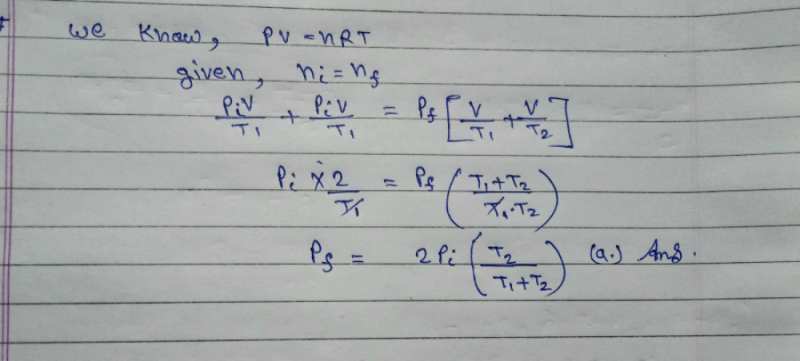 we know, PV = nRT
given, ni = nf
PiV/T1 + PiV/T1 = Pf [V/T1 + V/T2]
Pi × 2/T1 = Pf (T1+T2/T1.T2)
Pf = 2Pi (T2/T1+T2) (a.) Ans.